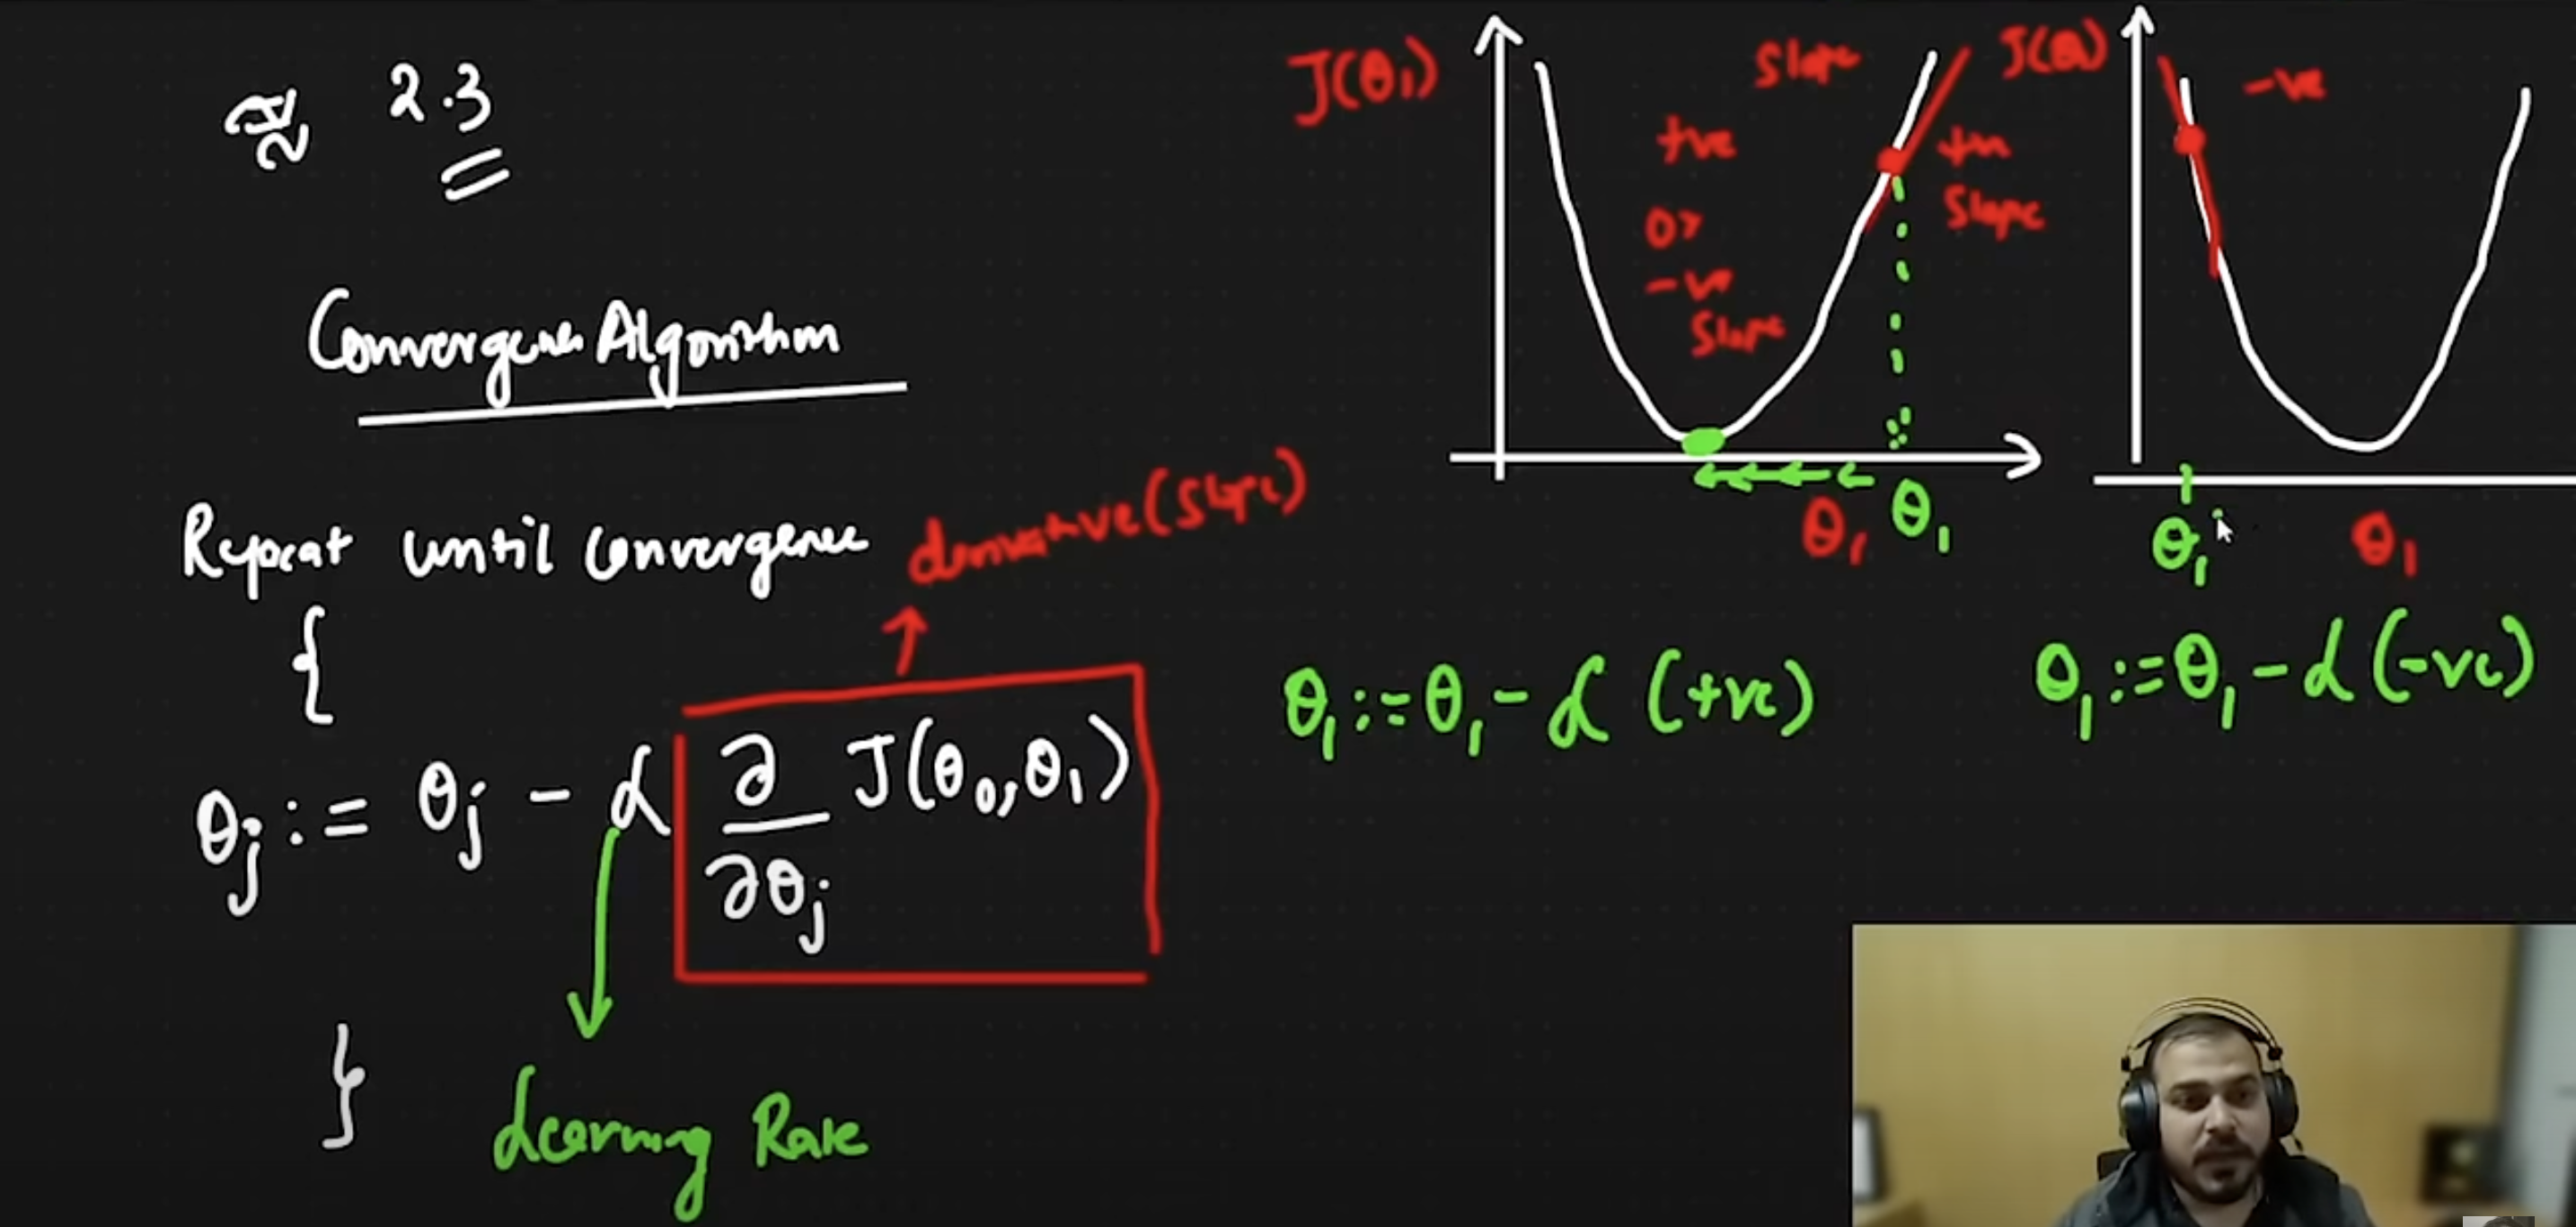 ≈ 2.3
Convergence Algorithm
Repeat until convergence
{
θj := θj - α ∂/∂θj J(θ0, θ1)
}
derivative (slope)
Learning Rate
J(θ1)
Slope
+ve
or
-ve
Slope
+ve
Slope
θ1
θ1
θ1 := θ1 - α (+ve)
-ve
θ1
θ1
θ1 := θ1 - α (-ve)